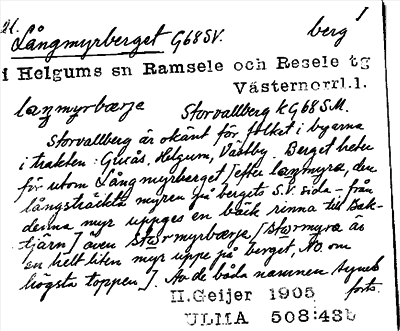 21.
Långmyrberget G68SV. berg 1
i Helgums sn Ramsele och Resele tg
Västernorrl.l.
laŋmyrbærje Storvallberg k G68 S.M.
Storvallberg är okänt för folket i byarna
i trakten: Gusås, Helgum, Västby. Berget heter
för utom Långmyrberget [efter laŋmyra, den
långsträckta myren på bergets S.V. sida – från
denna myr uppges en bäck rinna till Bak-
tjärn] även stormyrbærje [stormyra är
en helt liten myr uppe på berget, NO om
högsta toppen]. No de båda namnen synes
forts.
H.Geijer 1905
ULMA 508:435